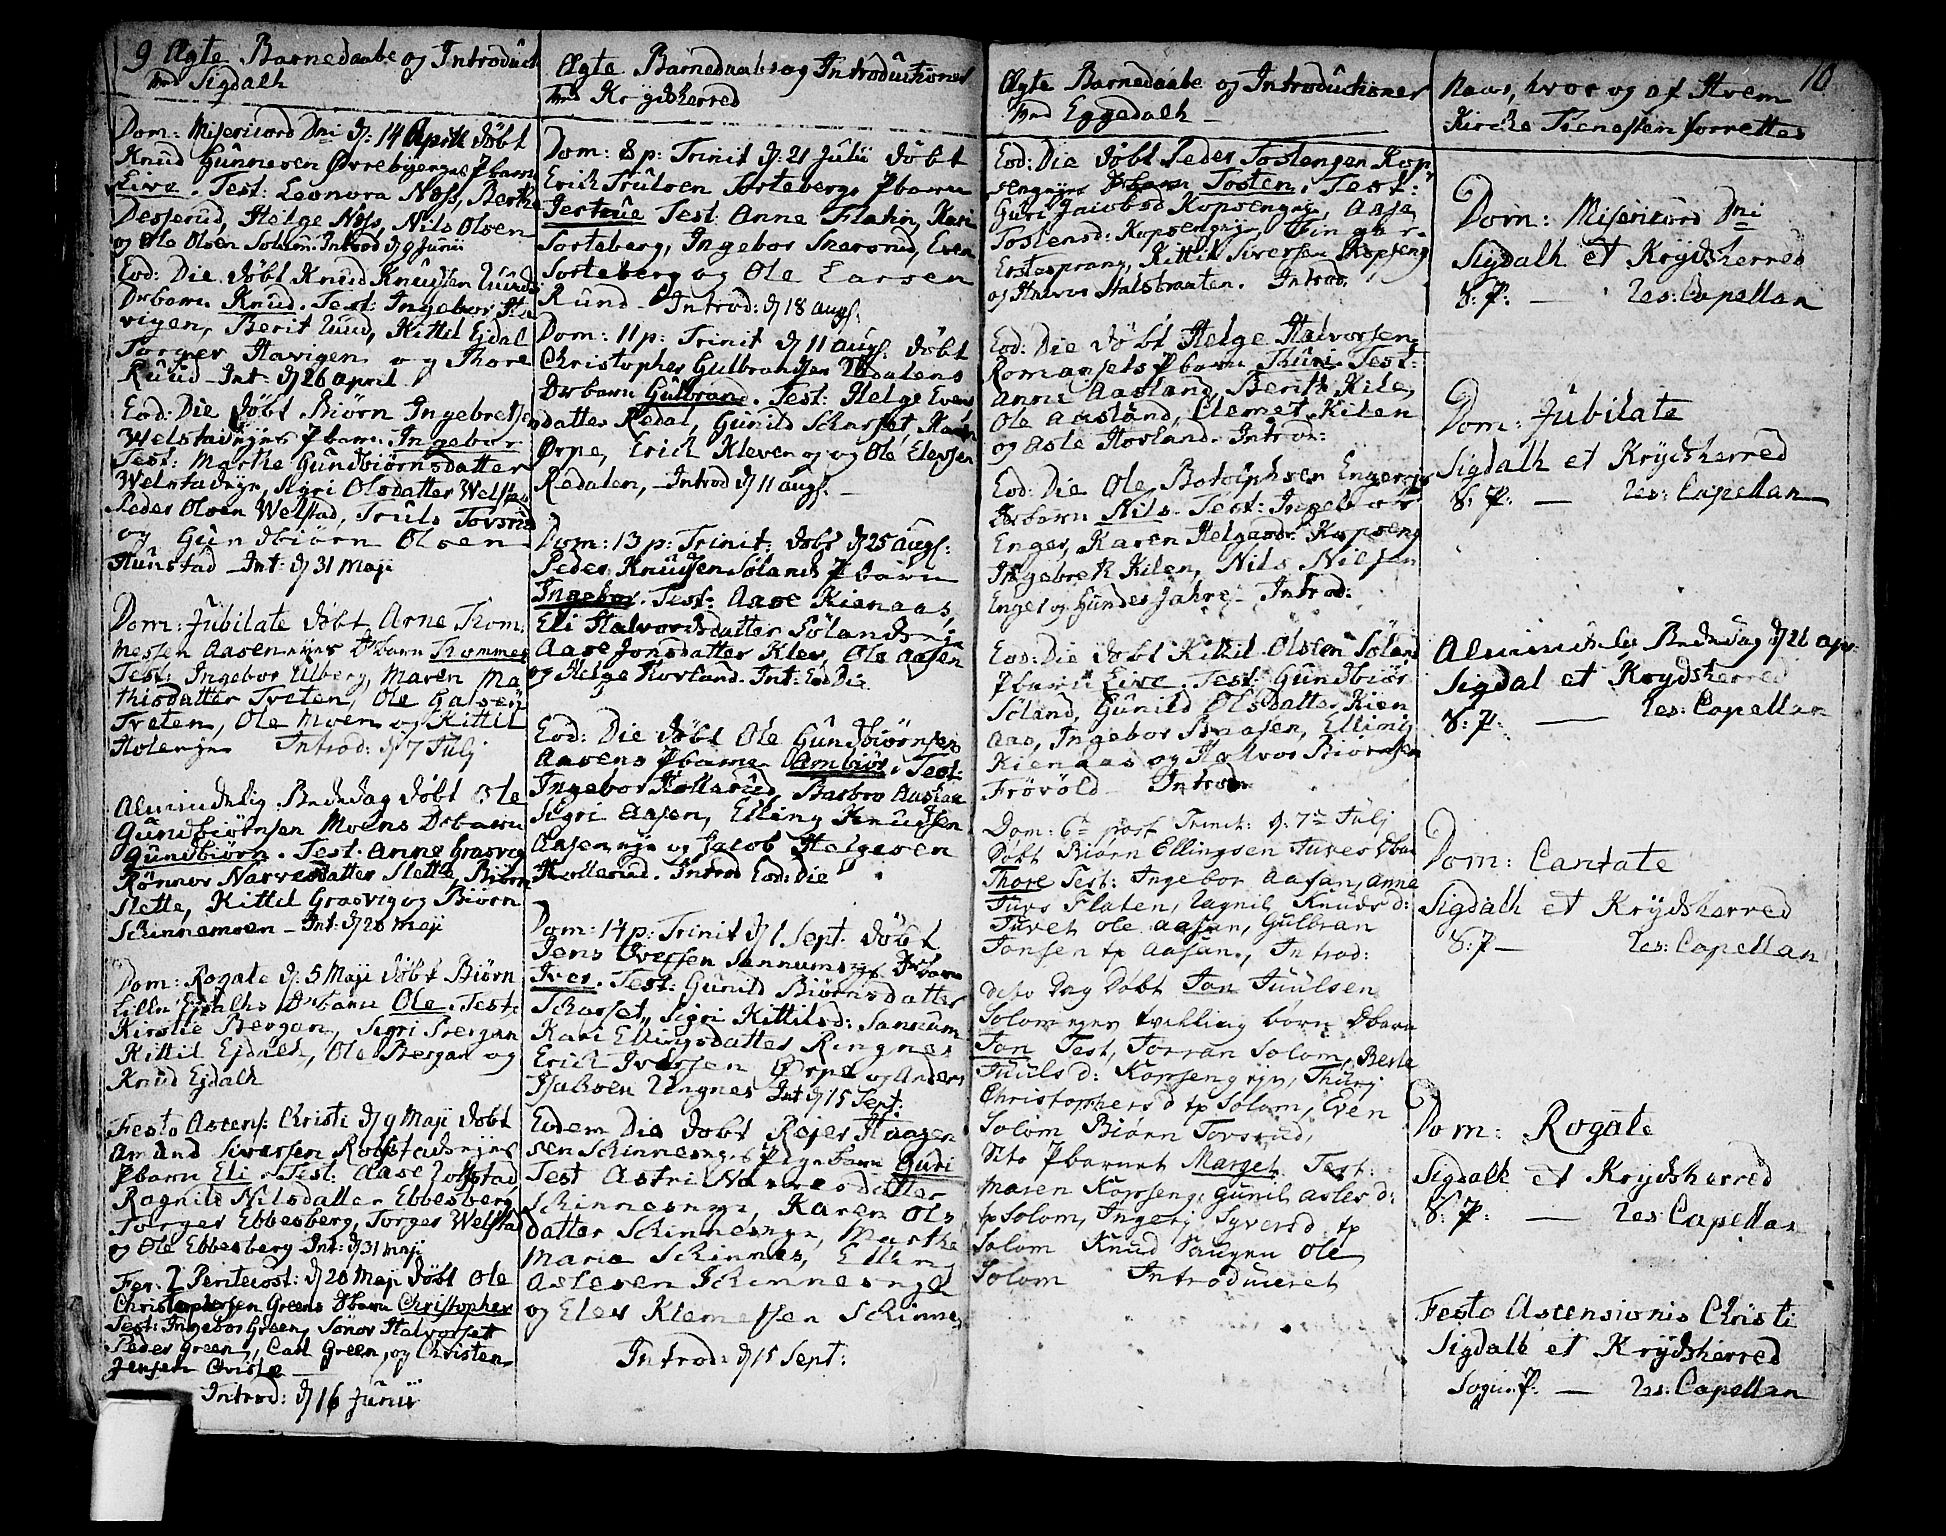 9 Ægte Barnedaabe og Introduct
ved Sigdalh
Dom: Misericord Dni d: 14 April døbt
Knud Gunnersen Øvrebyenges Pbarn
Live. Test: Leonora Næss, Berthe
Desserud, Helge Næss, Nils Olsen
og Ole Olsen Solum. Introd d 9 Junii
Eod: Die døbt Knud Knudsen Ruuds
Drbarn Knud. Test: Ingebor Ha
vigen, Berit Ruud, Kittil Ejdal
Torger Havigen og Thore
Ruud - Int: d 26 april
Eod: Die døbt Biørn Ingebretse
Welstadeyes Pbarn Ingebor
Test: Marthe Gundbiørnsdatter
Welstadeye, Sigri Olsdatter Welstad
Peder Olsen Welstad, Truls Tovsrud
og Gundbiørn Olsen
Hunstad - Int: d 31 Maji
Dom: Jubilate døbt Arne Thom
messen Aasen eyes Drbarn Thommes
Test: Ingebor Ulberg, Maren Ma
thisdatter Treten, Ole Galsen
Treten, Ole Moen og Kittil
Holeneye Introd: d 7 Julj
Almindelig Bededag døbt Ole
Gundbiørnsen Moens Drbarn
Gundbiørn. Test: Anne Grasvig
Rønnov Narvesdatter Slette Biørn
Slette, Kittil Grasvig og Biørn
Schinnemoen - Int: d 20 Maji
Dom: Rogate d: 5 Maji døbt Biørn
Lille Ejdalhs Drbarn Ole. Test:
Kirstie Bergan, Sigri Bergan
Kittil Ejdalh, Ole Bergan og
Knud Ejdalh
Festo Ascens: Christi d 9 Maji døbt
Amund Siversen Rolfstadeyes
Pbarn Eli. Test: Aase Rolfstad
Ragnild Nilsdatter Ebbesberg
Torger Ebbesberg, Torger Welstad
og Ole Ebbesberg - Int: d 31 maji
Fer: 2 Pentecost: d 20 Maji døbt Ole
Christophersen Greens Drbarn Christopher
Test: Ingebor Green, Sønov Halvorset
Peder Green, Carl Green, og Christen
Jensen Christe
Introd: d 16 Junii
Ægte Barnedaabe og Introductioner
ved Krydsherred
Dom: 8 p: Trinit d: 21 Julii døbt
Erich Trulsen Sortebergs Pbarn
Jertrue Test: Anne Flahn, Kari
Sorteberg, Ingebor Snarsrud, Even
Sorteberg og Ole Larsen
Rund - Introd: d 18 augs:
Dom: 11 p: Trinit d 11 augs: døbt
Christopher Gulbrandsen Redalens
Drbarn Gulbrand. Test: Helge Evens
datter Redal, Gunild Scharset, Karen
Ørpe, Erich Kleven og Ole Elevsen
Redalen, - Introd d 11 augs: -
Dom: 13 p: Trinit: døbt d 25 augs:
Peder Knudsen Sølands Pbarn
Ingebor. Test: Aase Kienaas,
Eli Halvorsdatter Sølandseye
Aase Jonsdatter Klev, Ole Aasen
og Helge Hovland. Int: Eod Die
Eod: Die døbt Ole Gundbiørnsen
Aasens Pbarn Ambiør. Test:
Ingebor Hollerud, Barbro Aaslan
Sigri Aasen, Elling Knudsen
Aaseneye og Jacob Helgesen
Hollerud. Introd Eod: Die
Dom: 14 p: Trinit d 1 Sept: døbt
Jens Iversen Sannumseyes Drbarn
Iver. Test: Gunild Biørnsdatter
Scharset, Sigri Kittilsd: Sannum
Kari Ellingsdatter Ringnes
Erich Iversen Ørpe og Anders
Hjulsen Ringnes Int d 15 Sept:
Eodem Die døbt Rejer Haagen
sen Schinneseyes Pigebarn Guri
Test Astri Narvesdatter
Schinneseye, Karen Ols
datter Schinneseye, Marthe
Maria Schinnes, Elling
Aslesen Schinneseye
og Elev Klemetsen Schinne
Introd: d 15 Sept:
Ægte Barnedaabe og Introductioner
ved Eggedalh -
Eod: Die døbt Peder Tostensen Kop
sengeyes Drbarn Tosten. Test:
Guri Jacobsd Kopsengeye, Aase
Tostensd: Kopsengeye, Fingar
Enstasprang, Kittil Siversen Kopseng
og Halvor Halstraaten. Introd:
Eod: Die døbt Helge Halvorsen
Romaasets Pbarn Thuri. Test:
Anne Aasland, Berith Kile,
Ole Aasland, Clemet Kilen
og Asle Hovland. Introd:
Eod: Die Ole Botolphsen Engereys
Drbarn Nils. Test: Ingebor
Enger, Karen Helgasdr Kopseng
Ingebreth Kilen, Nils Nilsen
Enger og Gunder Jahre - Introd:
Eod: Die døbt Kittil Olsen Søland
Pbarn Live. Test: Gundbiør
Søland, Gunild Olsdatter Kien
aas, Ingebor Braasen, Elling
Kienaas og Halvor Biørnsen
Frøvold - Introd:
Dom: 6te post Trinit: d: 7de Julj
Døbt Biørn Ellingsen Tures Dbar
Thore Test: Ingebor Aasan, Anne
Turs Flaten, Ragnil Knudsd:
Turet Ole Aasan, Gulbran
Jonsen tp Aasan., Introd:
dito Dag Døbt Jon Juulsen
Solomeyes tvilling børn Dbarn
Jon Test, Jorran Solom, Berte
Juulsd: Kopsengeye, Thurj
Christophersd tp Solom, Even
Solom Biørn Tovsrud,
Dito Pbarnet Marget Test:
Maren Kopseng, Gunil Aslesd:
tp Solom, Ingerj Syversd tp
Solom Knud Haugen Ole
Solom Introduceret
10
Naar, hvor og af Hvem
Kircke Tienesten forrettes
Dom: Misericord Dni
Sigdalh et Krydsherred
S: P: — Res: Capellan
Dom: Jubilate
Sigdalh et Krydsherred
S: P: — Res: Capellan
Almindelig Bededag d 26 apr:
Sigdal et Krydsherred
S: P: — Res: Capellan
Dom: Cantate
Sigdalh et Krydsherred
S: P — Res: Capellan
Dom: Rogate
Sigdalh et Krydsherred
S: P: — Res: Capellan
Festo Ascensionis Christi
Sigdalh et Krydsherred
Sogne P: — Res: Capellan